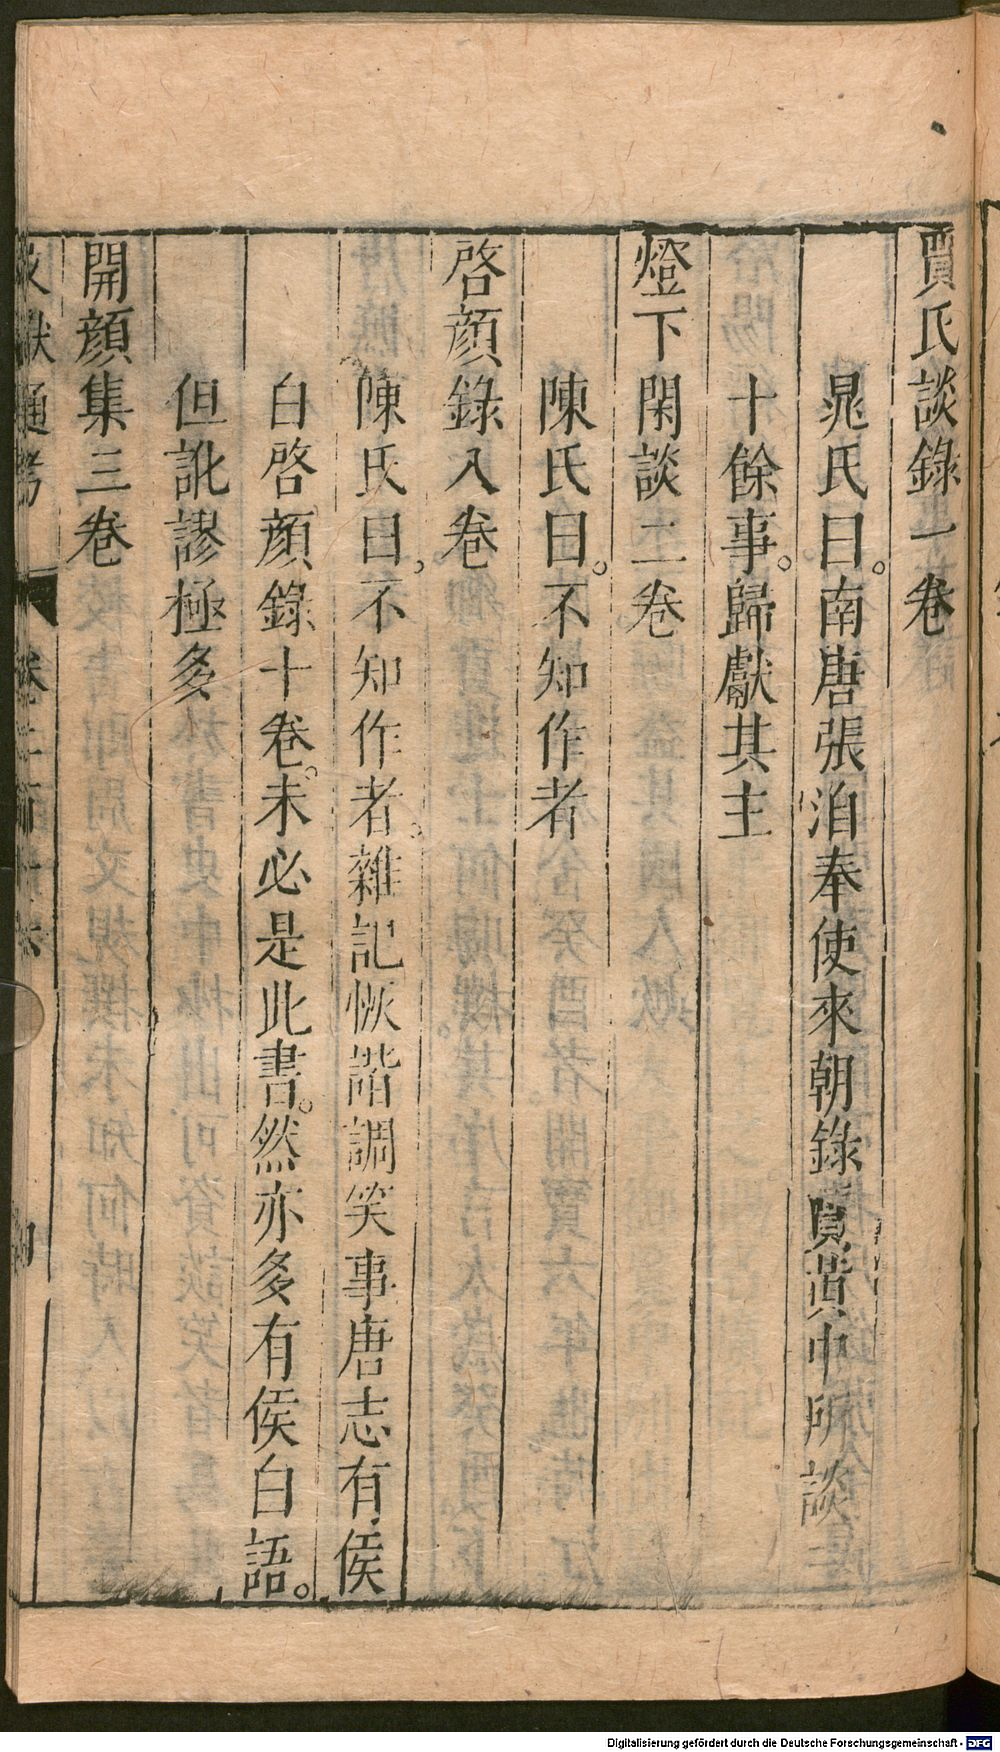 賈氏談錄一卷
晁氏曰。南唐張洎奉使來朝錄賈黃中所談三
十餘事。歸獻其主
燈下閑談二卷
陳氏曰。不知作者
啓顔錄八卷
陳氏曰。不知作者。雜記恢諧調笑事唐志有侯
白啓顔錄十卷。未必是此書。然亦多有侯白語。
但訛謬極多
開顔集三卷
文獻通考 卷二百十六
Digitalisierung gefördert durch die Deutsche Forschungsgemeinschaft - DFG